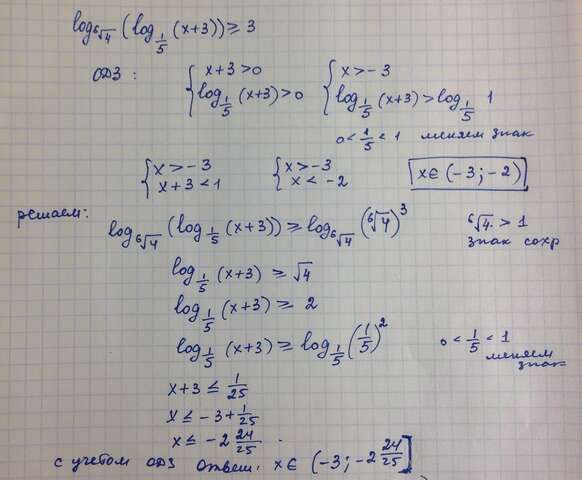 log_{⁶√4} (log_{1/5} (x+3)) ≥ 3
ОДЗ : { x+3>0 { x>-3
{ log_{1/5} (x+3) >0 { log_{1/5} (x+3) > log_{1/5} 1
0 < 1/5 < 1 меняем знак
{ x>-3 { x>-3 x∈(-3; -2)
{ x+3<1 { x< -2
решаем:
log_{⁶√4} (log_{1/5} (x+3)) ≥ log_{⁶√4} (⁶√4)³ ⁶√4. > 1
знак сохр
log_{1/5} (x+3) ≥ √4
log_{1/5} (x+3) ≥ 2
log_{1/5} (x+3) ≥ log_{1/5} (1/5)² 0 < 1/5 < 1
меняем
знак
x+3 ≤ 1/25
x ≤ -3+1/25
x ≤ -2 24/25 .
с учетом ОДЗ Ответ: x∈ (-3; -2 24/25]